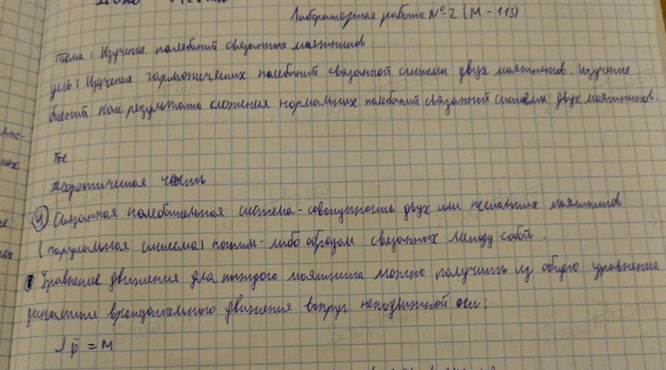 Лабораторная работа №2 (М-113)
Тема: Изучение колебаний связанных маятников
Цель: Изучение гармонических колебаний связанной системы двух маятников. Изучение
биений как результата сложения нормальных колебаний связанной системы двух маятников.
Те
Теоретическая часть
Связанная колебательная система - совокупность двух или нескольких маятников
(парциальная система) каким-либо образом связанных между собой.
Уравнение движения для каждого маятника можно получить из общего уравнения
динамики вращательного движения вокруг неподвижной оси:
= M